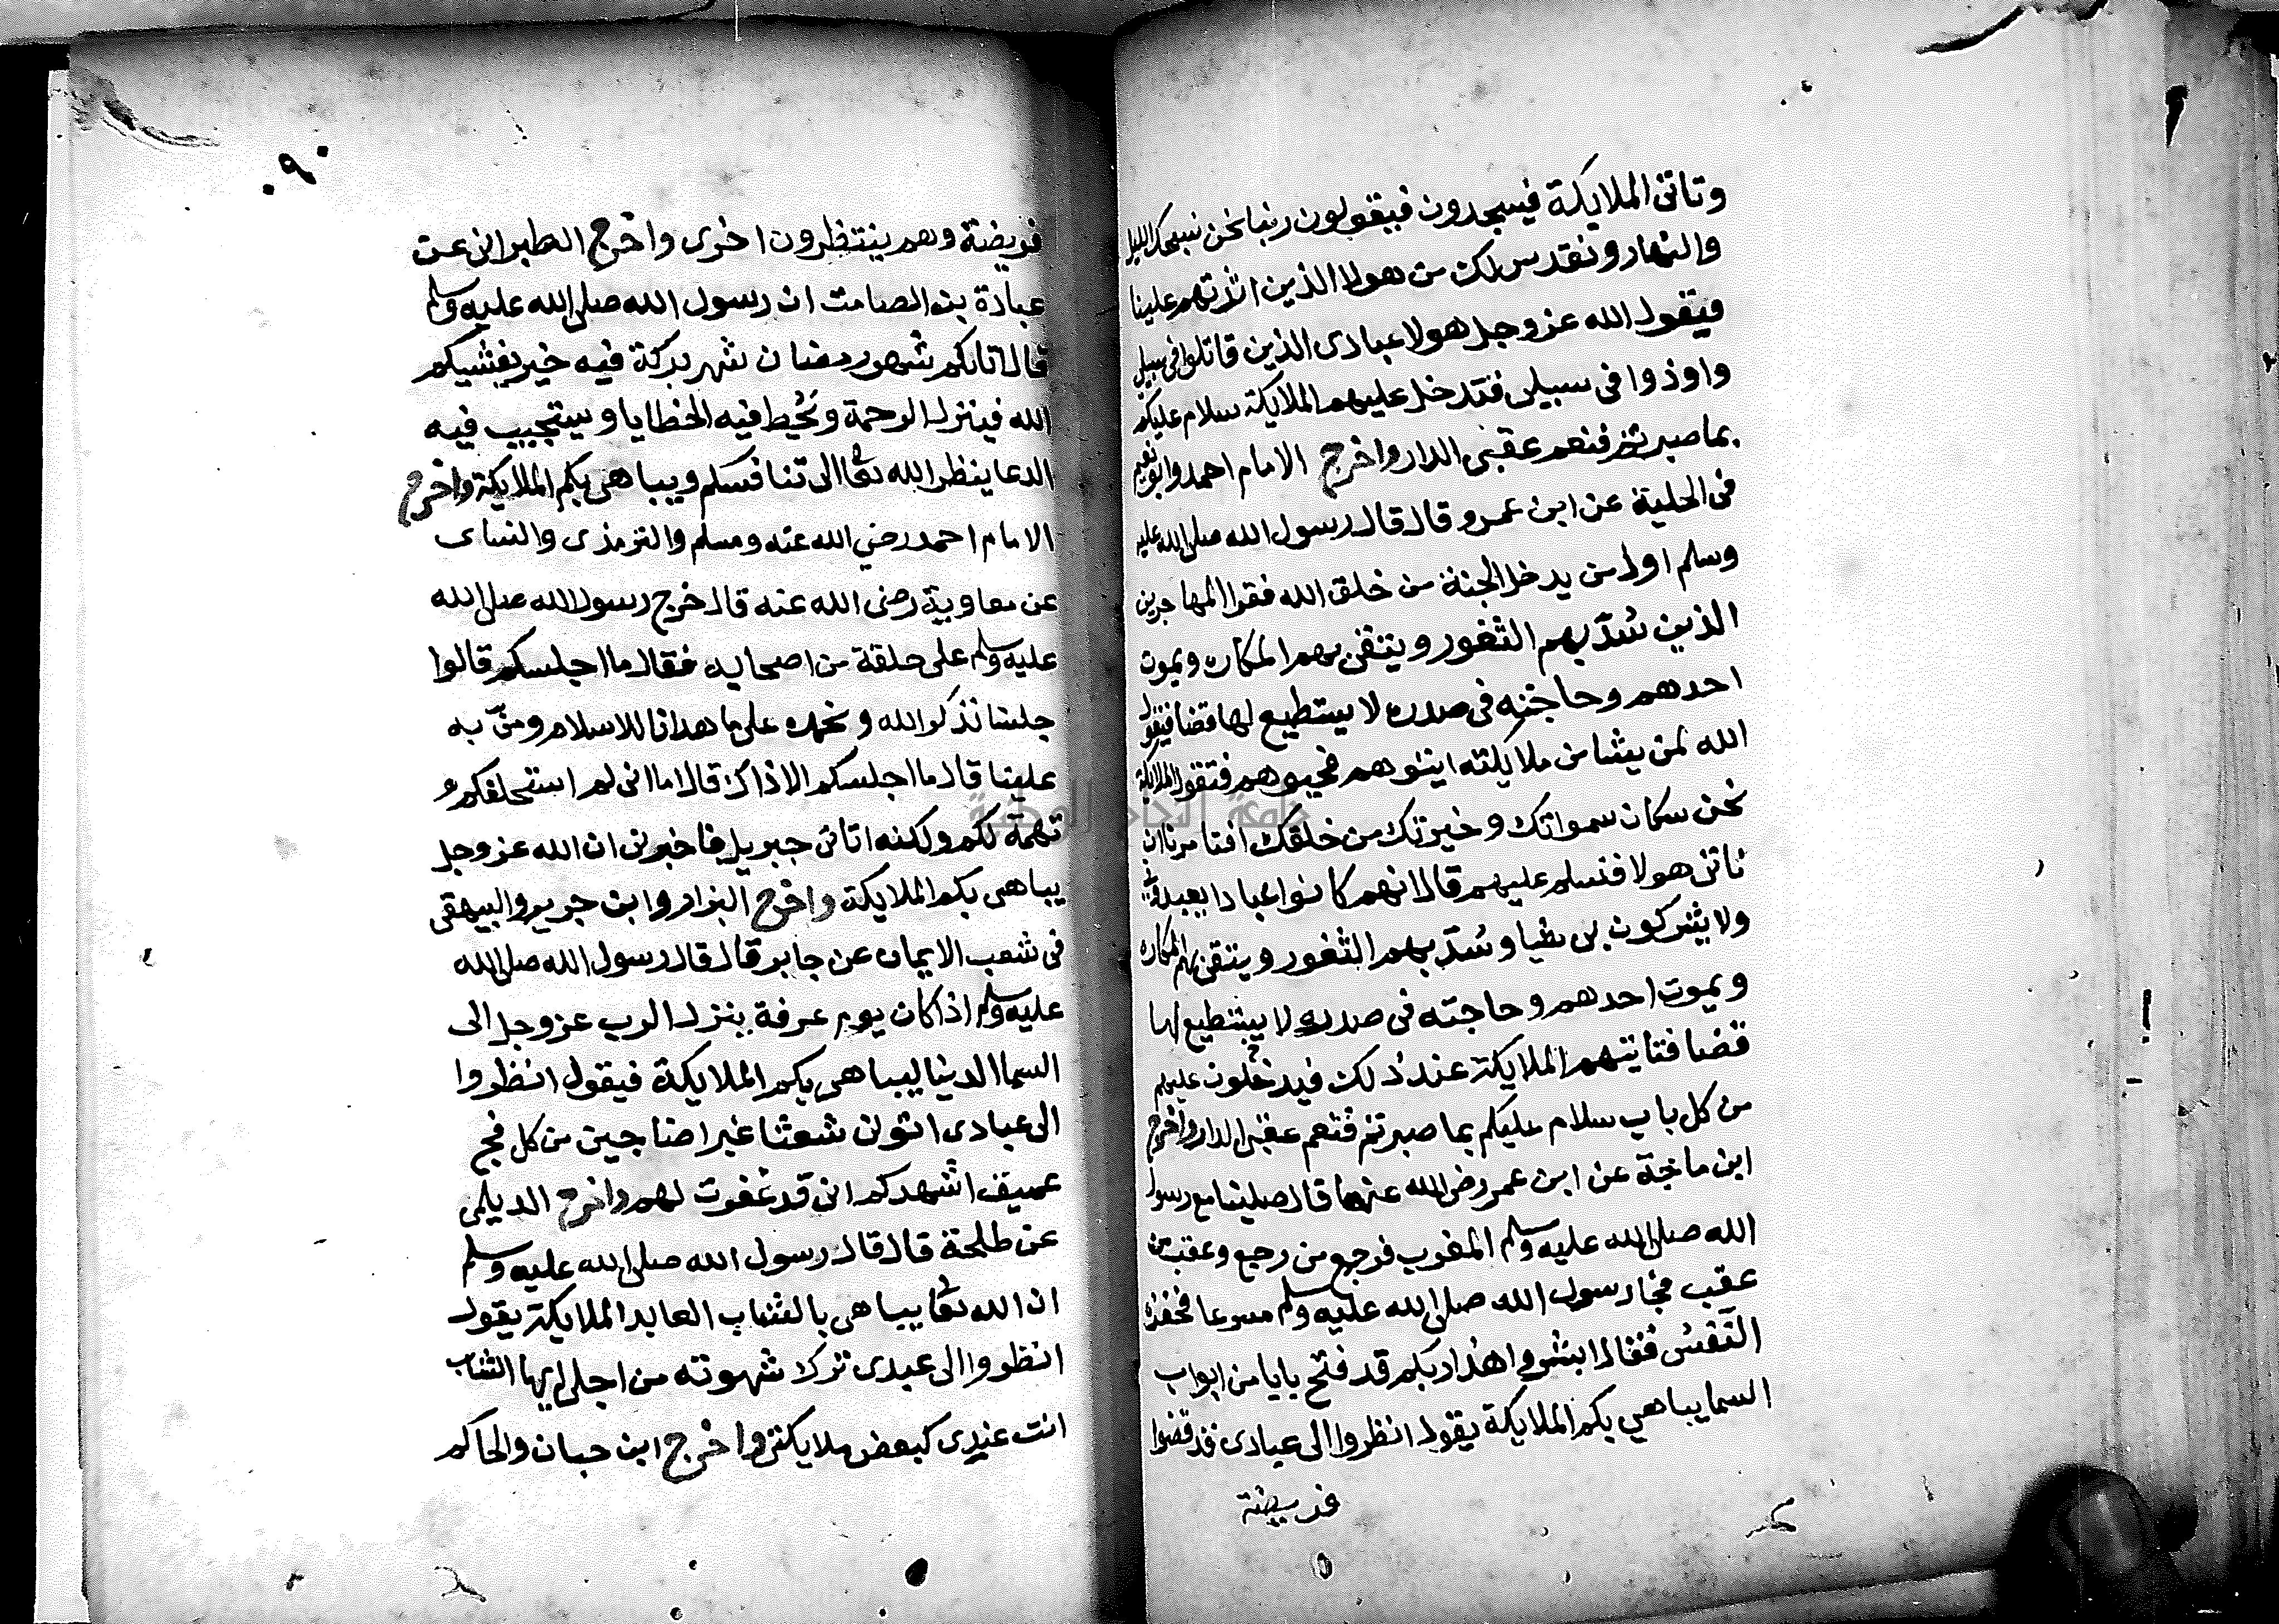 وتاتى الملايكة فيسجدون فيقولون ربنا نحن نسبحك الليل
والنهار ونقدس لك من هولا الذين اثرتهم علينا
فيقول الله عز وجل هولا عبادى الذين قاتلوا فى سبيلى
واوذوا فى سبيلى فتدخل عليهم الملايكة سلام عليكم
بما صبرتم فنعم عقبى الدار واخرج الامام احمد وابو نعيم
فى الحلية عن ابن عمرو قال قال رسول الله صلى الله عليه
وسلم اول من يدخل الجنة من خلق الله فقرا المهاجرين
الذين سُدّ بهم الثغور ويتقى بهم المكاره ويموت
احدهم وحاجته فى صدره لا يستطيع لها قضا فيقول
الله لمن يشا من ملايكته ايتوهم فحيوهم فتقول الملايكة
نحن سكان سمواتك وخيرتك من خلقك افتامرنا ان
ناتى هولا فنسلم عليهم قال انهم كانوا عبادا يعبدونى
ولا يشركون بى شيا وسُدّ بهم الثغور ويتقى بهم المكاره
ويموت احدهم وحاجته فى صدره لا يستطيع لها
قضا فتاتيهم الملايكة عند ذلك فيدخلون عليهم
من كل باب سلام عليكم بما صبرتم فنعم عقبى الدار واخرج
ابن ماجة عن ابن عمر رضى الله عنهما قال صلينا مع رسول
الله صلى الله عليه وسلم المغرب فرجع من رجع وعقب من
عقب فجا رسول الله صلى الله عليه وسلم مسرعا فحفزه
النّفَسُ فقال ابشروا هذا ربكم قد فتح بابا من ابواب
السما يباهي بكم الملايكة يقول انظروا الى عبادى قد قضوا
فريضة
٩٠
فريضة وهم ينتظرون اخرى واخرج الطبرانى عن
عبادة بن الصامت ان رسول الله صلى الله عليه وسلم
قال اتاكم شهر رمضان شهر بركة فيه خير يغشيكم
الله فينزل الرحمة ويُحيط فيه الخطايا ويستجيب فيه
الدعا ينظر الله تعالى الى تنافسكم ويباهى بكم الملايكة واخرج
الامام احمد رضي الله عنه ومسلم والترمذى والنساى
عن معاوية رضى الله عنه قال خرج رسول الله صلى الله
عليه وسلم على حلقة من اصحابه فقال ما اجلسكم قالوا
جلسنا نذكر الله ونحمده على ما هدانا للاسلام ومنّ به
علينا قال ما اجلسكم الا ذاك قال اما انى لم استحلفكم
تهمة لكم ولكنه اتانى جبريل فاخبرنى ان الله عز وجل
يباهى بكم الملايكة واخرج البزار وابن جرير والبيهقى
فى شعب الايمان عن جابر قال قال رسول الله صلى الله
عليه وسلم اذا كان يوم عرفة ينزل الرب عز وجل الى
السما الدنيا ليباهى بكم الملايكة فيقول انظروا
الى عبادى اتونى شعثا غبرا ضاجين من كل فج
عميق اشهدكم انى قد غفرت لهم واخرج الديلمى
عن طلحة قال قال رسول الله صلى الله عليه وسلم
ان الله تعالى يباهى بالشاب العابد الملايكة يقول
انظروا الى عبدى ترك شهوته من اجلى ايها الشاب
انت عندى كبعض ملايكتى واخرج ابن حبان والحاكم
جامعة النجاح الوطنية